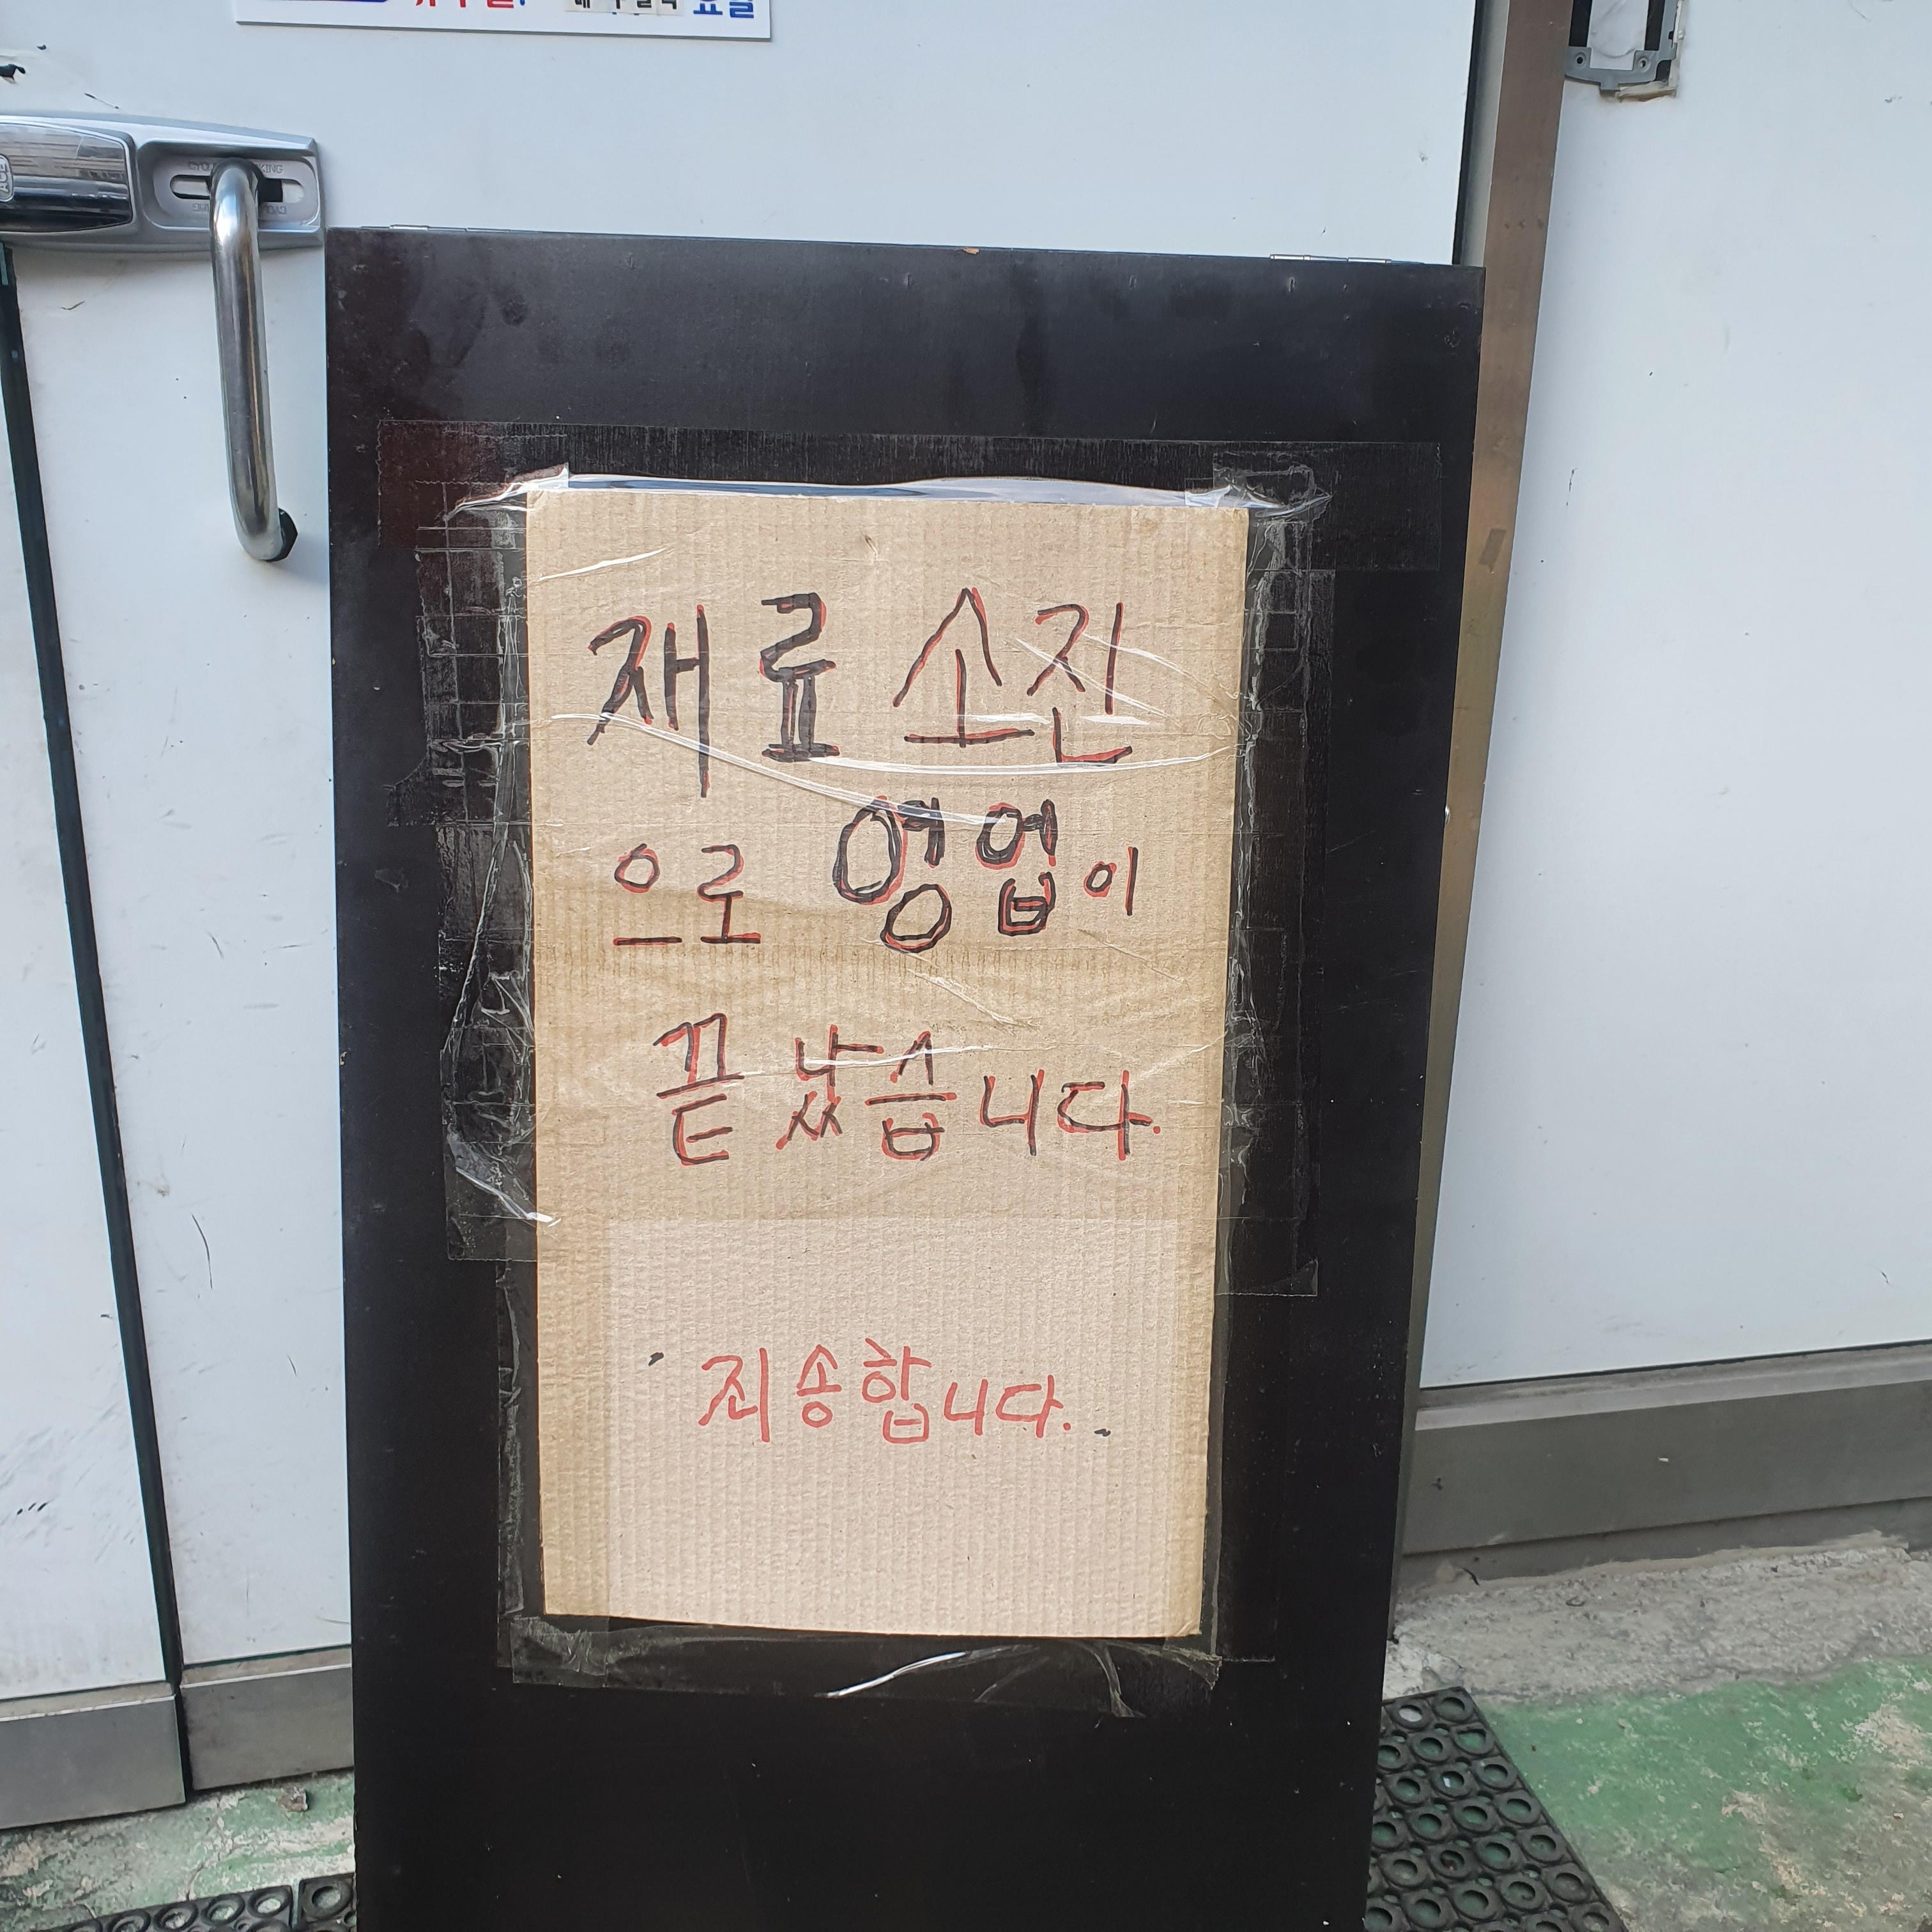 요일
재료 소진
으로 영업이
끝났습니다.
죄송합니다.